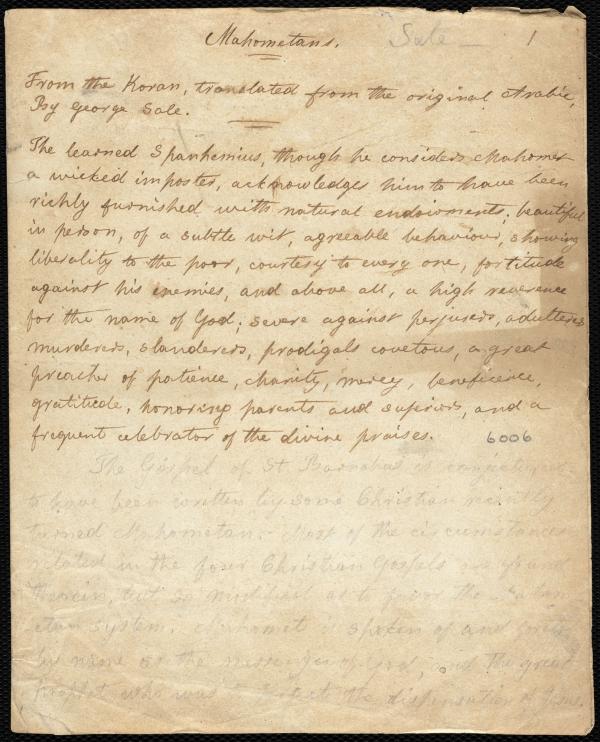 Mahometans. Sale — 1
From the Koran, translated from the original Arabic,
By George Sale.
The learned Spanhemius, though he considers Mahomet
a wicked imposter, acknowledges him to have been
richly furnished with natural endowments; beautiful
in person, of a subtle wit, agreeable behaviour, showing
liberality to the poor, courtesy to every one, fortitude
against his enemies, and above all, a high reverence
for the name of God; severe against perjurers, adulterers
murderers, slanderers, prodigals covetous, a great
preacher of patience, charity, mercy, beneficence,
gratitude, honoring parents and superiors, and a
frequent celebrator of the divine praises. 6006
The Gospel of St Barnabas is conjectured
to have been written by some Christian recently
turned Mahometan. Most of the circumstances
related in the four Christian Gospels are found
therein, but so modified as to favor the
system. Mahomet is spoken of and
by name as the messenger of God, and the great
prophet who was to the dispensation of Jesus.